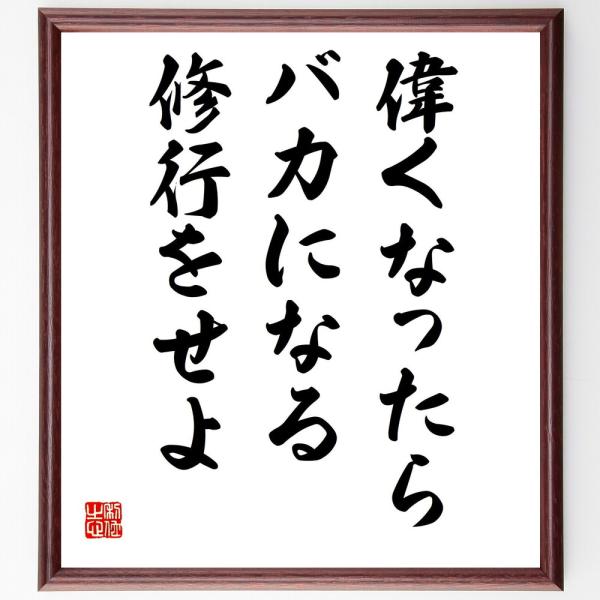 偉くなったら
バカになる
修行をせよ